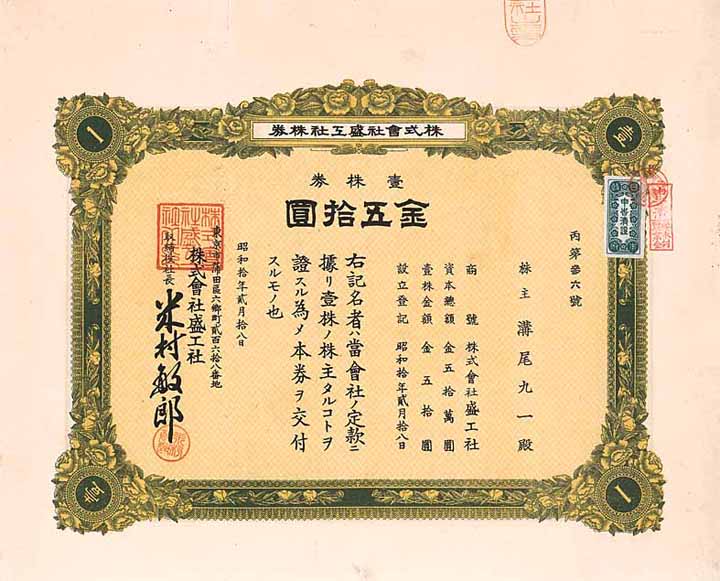 株式會社盛工社株券
壹
壹株券
金五拾圓
丙第參六號
株主 溝尾九一殿
商號 株式會社盛工社
資本總額 金五拾萬圓
壹株金額 金五拾圓
設立登記 昭和拾年貳月拾八日
右記名者ハ當會社ノ定款ニ
據リ壹株ノ株主タルコトヲ
證スル為メ本券ヲ交付
スルモノ也
昭和拾年貳月拾八日
東京市蒲田區六郷町貳百六拾八番地
株式會社盛工社
取締役社長
米村敏郎
壹